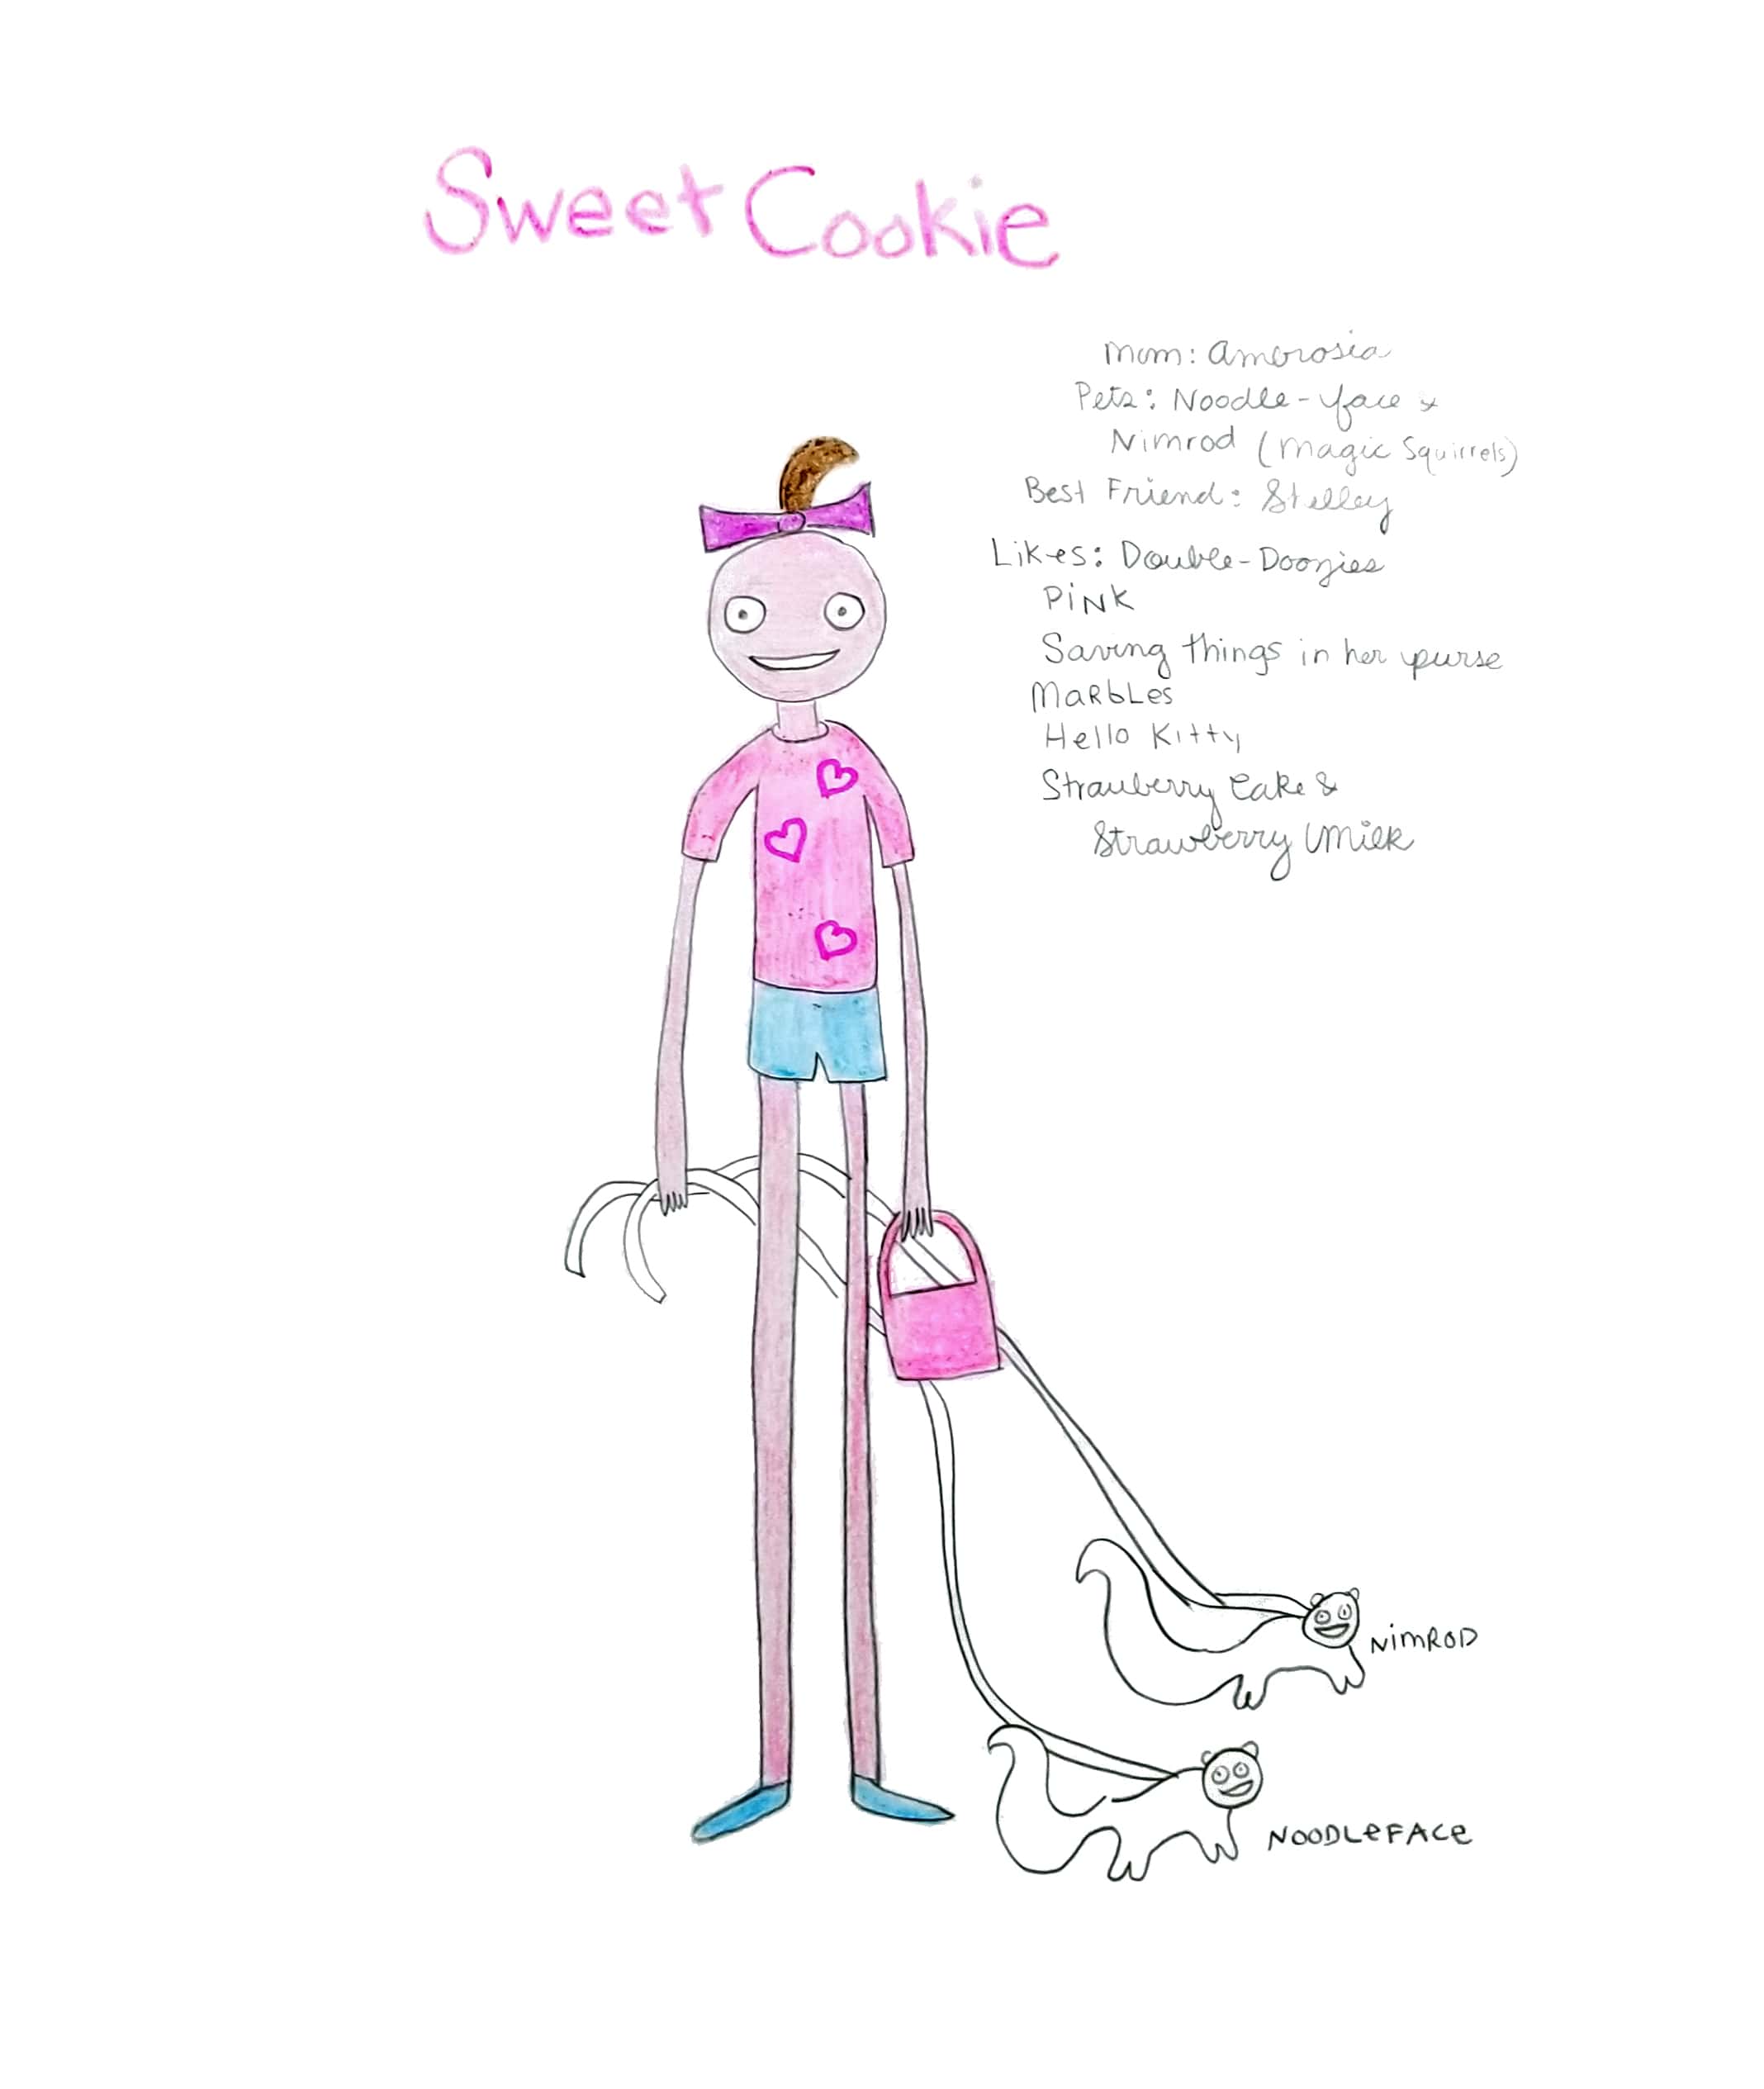 Sweet Cookie
Mom: Ambrosia
Pets: Noodle-face &
Nimrod (Magic Squirrels)
Best Friend: Stelley
Likes: Double-Doozies
PiNK
Saving things in her purse
MaRbLes
Hello Kitty
Strawberry Cake &
Strawberry Milk
NimROD
NOODLeFACe